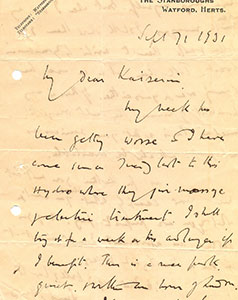 THE STANBOROUGHS
WATFORD, HERTS.
Sept 7, 1931
My dear Kaiserin
My neck has
been getting worse & I have
come on a Sunday last to this
Hydro where they give massage
galvanic treatment I shall
try it for a week or two as longer if
I benefit. This is a nice
quiet, within an hour of London